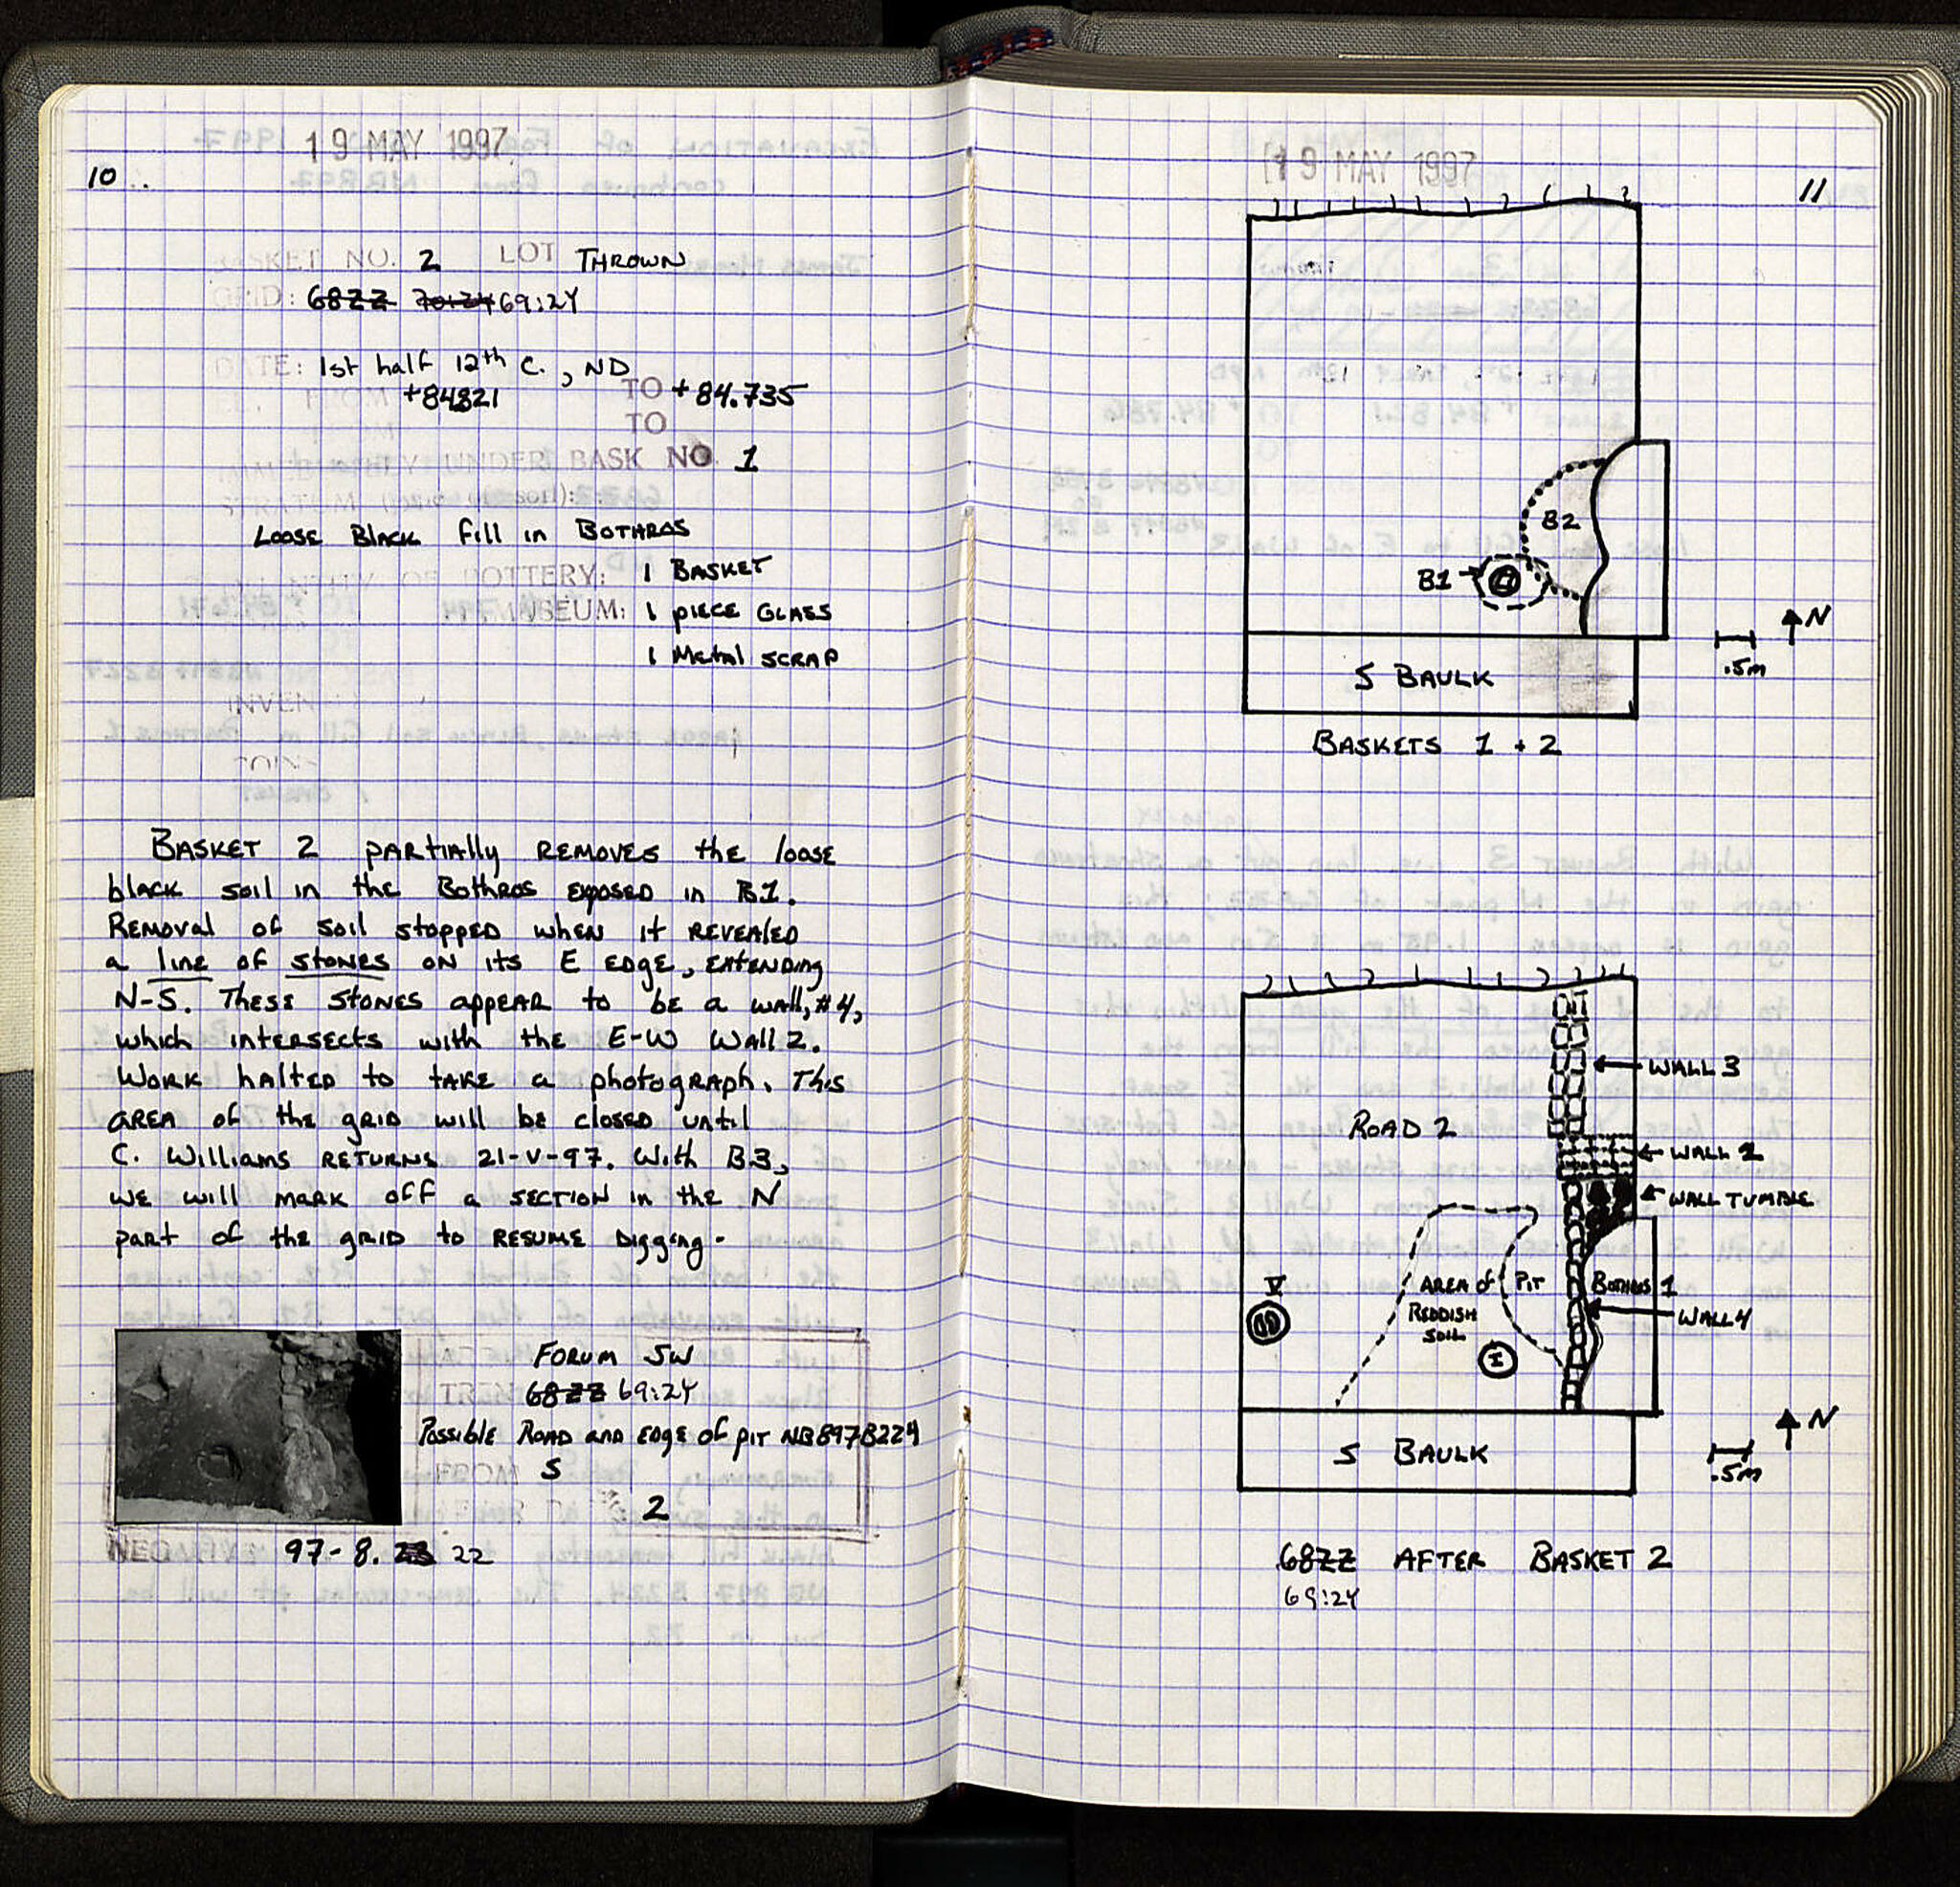 19 MAY 1997
10
BASKET NO. 2 LOT THROWN
GRID: 68ZZ 70:24 69:24
DATE: 1st half 12th C., ND
FROM +84821 TO +84.735
TO
IMMEDIATELY UNDER BASK NO 1
STRATUM
Loose Black fill in Bothros
QUANTITY OF POTTERY: 1 BASKET
MUSEUM: 1 piece GLASS
1 Metal SCRAP
INVEN
COINS
BASKET 2 partially removes the loose
black soil in the Bothros exposed in B1.
Removal of soil stopped when it revealed
a line of stones on its E edge, extending
N-S. These stones appear to be a wall, #4,
which intersects with the E-W Wall 2.
Work halted to take a photograph. This
area of the grid will be closed until
C. Williams returns 21-V-97. With B3,
we will mark off a section in the N
part of the grid to resume digging.
FORUM SW
68ZZ 69:24
Possible Road and edge of pit NB897B224
FROM S
2
NEGATIVE 97-8. 23 22
19 MAY 1997
11
B2
B1
N
.5m
S BAULK
BASKETS 1 + 2
WALL 3
ROAD 2
WALL 2
WALL TUMBLE
V
AREA of
REDDISH
SOIL
PIT
Bothros 1
WALL 4
I
N
.5m
S BAULK
68ZZ AFTER BASKET 2
69:24